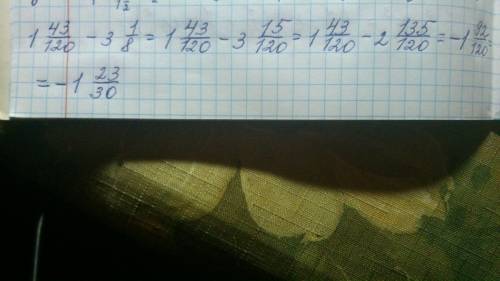 1 43/120 - 3 1/8 = 1 43/120 - 3 15/120 = 1 43/120 - 2 135/120 = -1 92/120 =
= -1 23/30